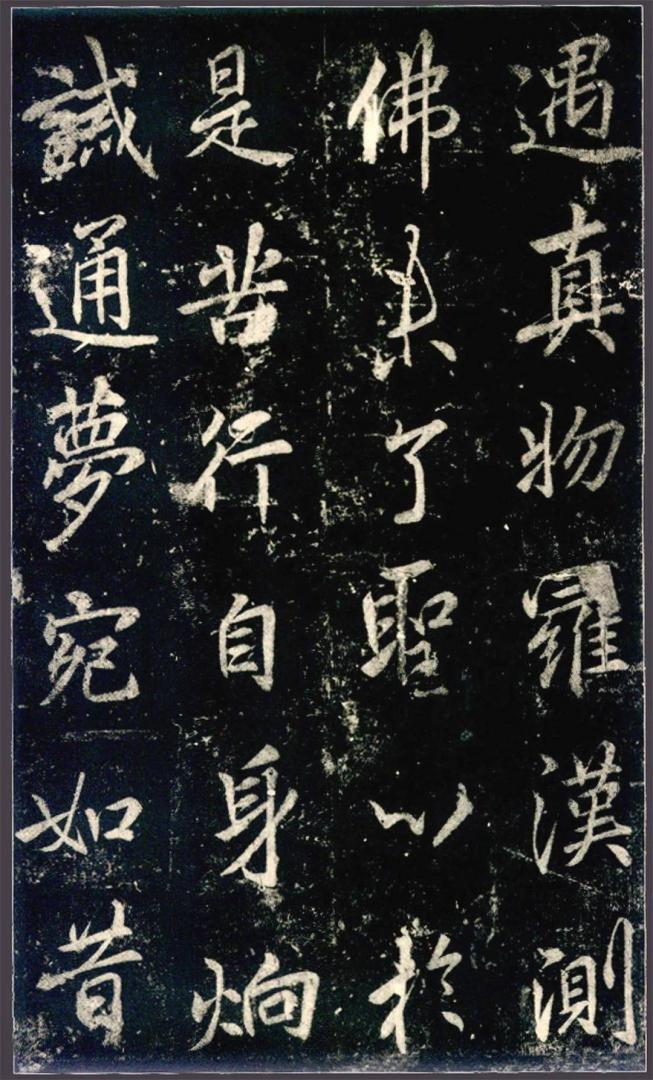 遇真物羅漢測
佛未了聖以於
是苦行自身炯
誠通夢宛如昔